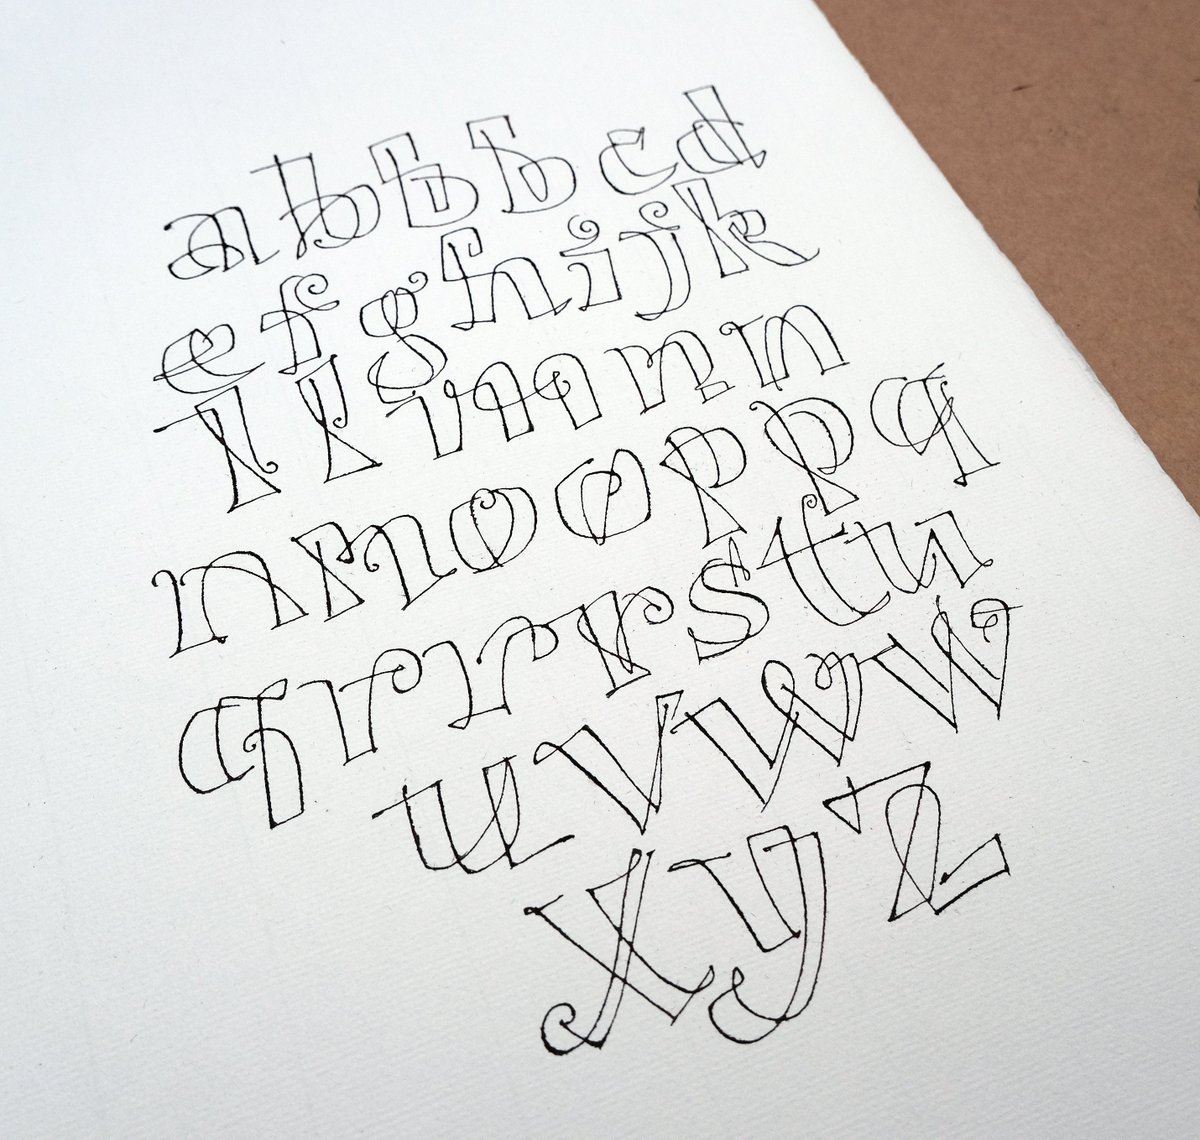 a b b b c d
e f g h i j k
l l m n n
n n o o p p q
q r r r s t u
u v w w
x y z